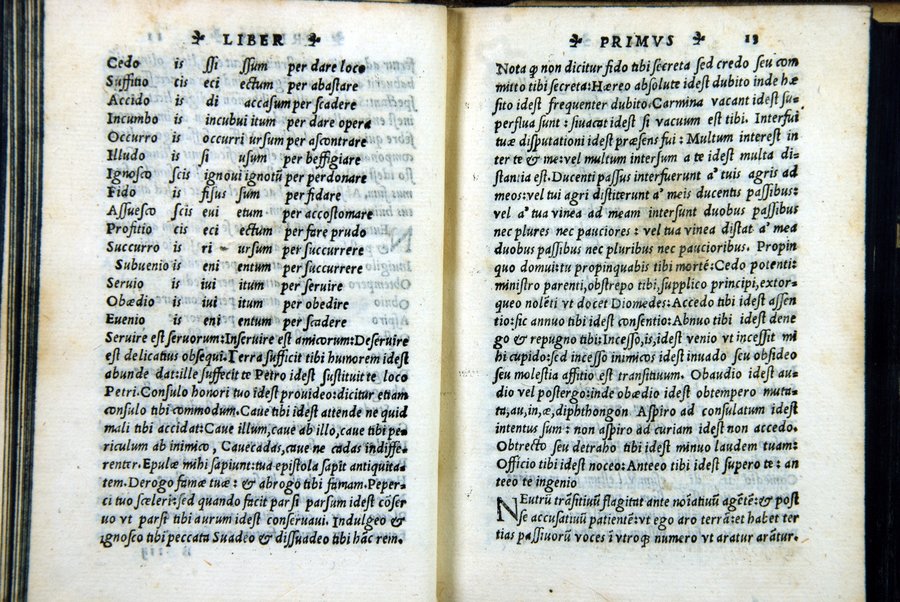 LIBER
Cedo is ssi ssum per dare loco
Suffitio cis eci ectum per abastare
Accido is di accasum per scadere
Incumbo is incubui itum per dare opera
Occurro is occurri ursum per ascontrare
Illudo is si usum per beffigiare
Ignosco scis ignoui ignotũ per perdonare
Fido is fisus sum per fidare
Assuesco scis eui etum per accostomare
Profitio cis eci ectum per fare prudo
Succurro is ri ursum per succurrere
Subuenio is eni entum per succurrere
Seruio is iui itum per seruire
Obædio is iui itum per obedire
Euenio is eni entum per scadere
Seruire est seruorum: Inseruire est amicorum: Deseruire
est delicatius obsequi. Terra sufficit tibi humorem idest
abunde dat: ille suffecit te Petro idest sustituit te loco
Petri. Consulo honori tuo idest prouideo: dicitur etiam
consulo tibi commodum. Caue tibi idest attende ne quid
mali tibi accidat: Caue illum, caue ab illo, caue tibi pe-
riculum ab inimico, Cauecadas, caue ne cadas indiffe-
renter. Epulæ mihi sapiunt: tua epistola sapit antiquita-
tem. Derogo famæ tuæ: & abrogo tibi famam. Peper-
ci tuo sceleri: sed quando facit parsi parsum idest cõser
uo vt parsi tibi aurum idest conseruaui. Indulgeo &
ignosco tibi peccata Suadeo & dissuadeo tibi hãc rem.
PRIMVS 13
Nota ꝙ non dicitur fido tibi secreta sed credo seu com
mitto tibi secreta: Hæreo absolute idest dubito inde hæ
sito idest frequenter dubito. Carmina vacant idest su-
perflua sunt: siuacat idest si vacuum est tibi. Interfui
tuæ disputationi idest præsens fui: Multum interest in
ter te & me: vel multum intersum a te idest multa di-
stantia est. Ducenti passus interfuerunt a' tuis agris ad
meos: vel tui agri distiterunt a' meis ducentis passibus:
vel a' tua vinea ad meam intersunt duobus passibus
nec plures nec pauciores: vel tua vinea distat a' mea
duobus passibus nec pluribus nec paucioribus. Propin
quo domui: tu propinquabis tibi mortẽ: Cedo potenti:
ministro parenti, obstrepo tibi, supplico principi, extor-
queo nolẽti vt docet Diomedes: Accedo tibi idest assen
tio: sic annuo tibi idest consentio: Abnuo tibi idest dene
go & repugno tibi: Incesso, is, idest venio vt incessit mi
hi cupido: sed incesso inimicos idest inuado seu obsideo
seu molestia affitio est transitiuum. Obaudio idest au-
dio vel postergo: inde obædio idest obtempero muta-
ta, au, in, æ, diphthongon Aspiro ad consulatum idest
intentus sum: non aspiro ad curiam idest non accedo.
Obtrecto seu detraho tibi idest minuo laudem tuam:
Officio tibi idest noceo: Anteeo tibi idest supero te: an
teeo te ingenio
NEutrũ trãsitiuũ flagitat ante noĩatiuũ agẽtẽ: & post
se accusatiuũ patientẽ: vt ego aro terrã: et habet ter
tias passiuorũ voces ĩ vtroqꝫ numero vt aratur arãtur.